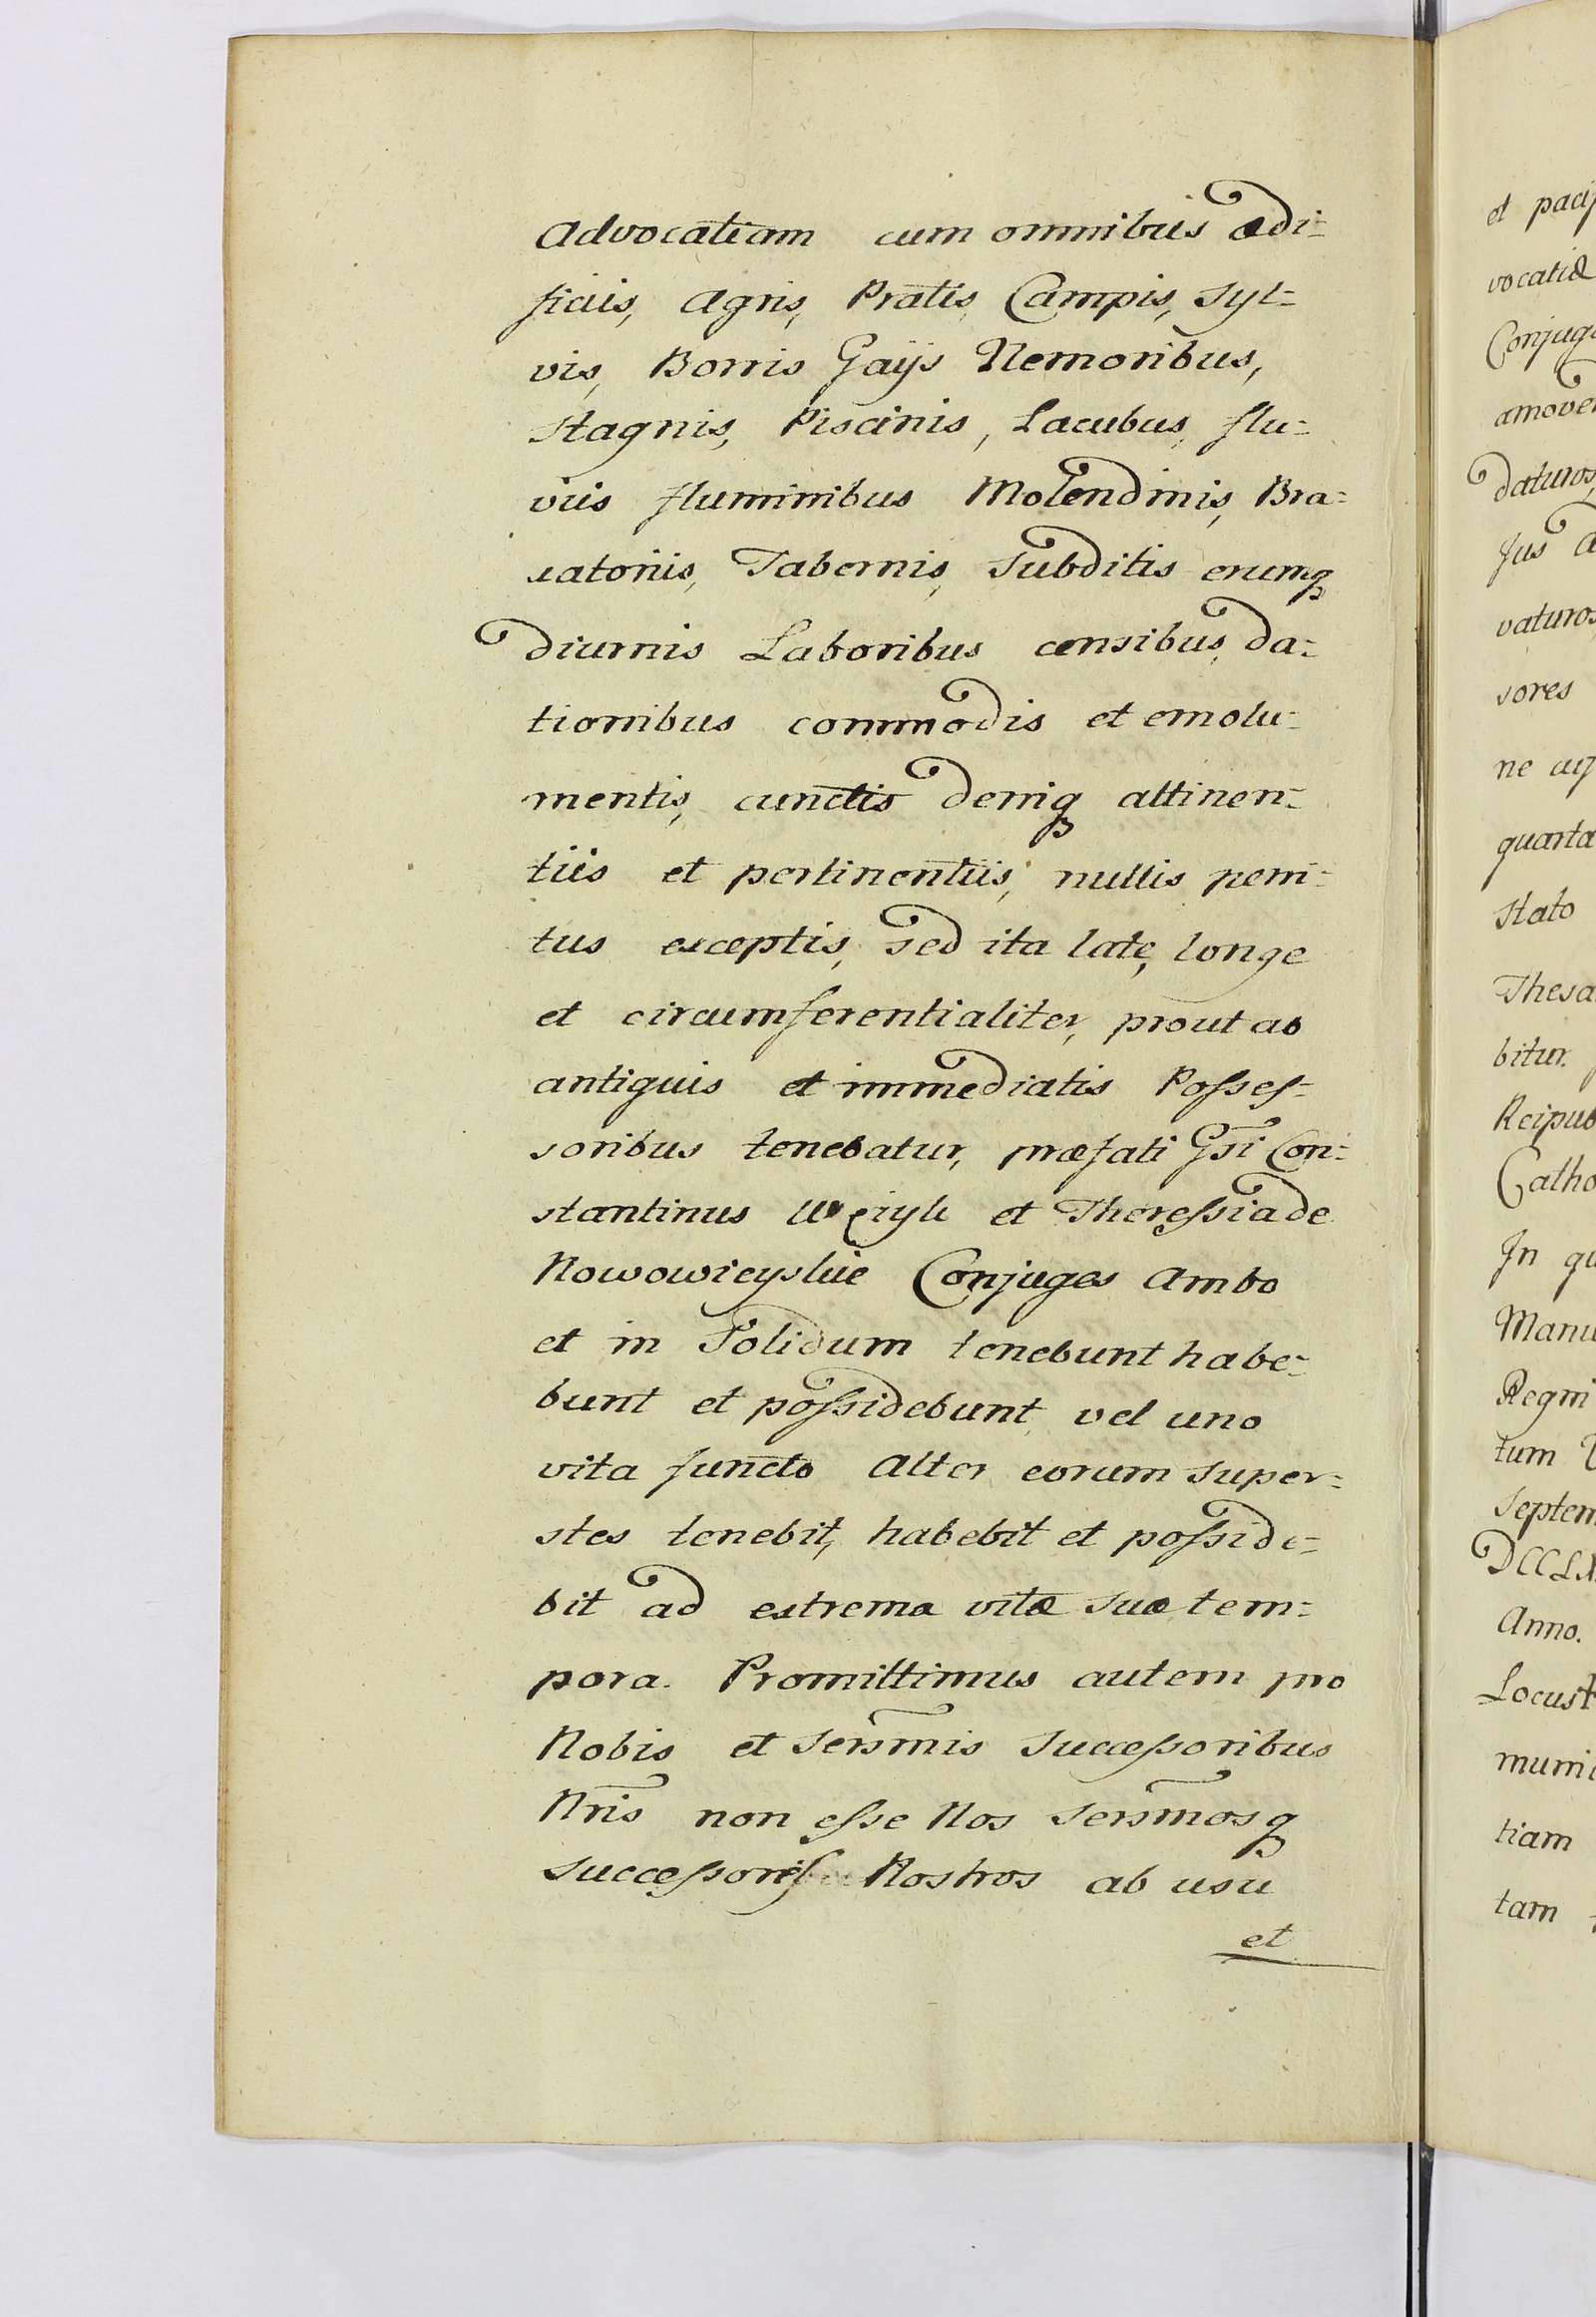 Advocatiam cum omnibus ædi=
ficiis, Agris, Pratis, Campis, Syl=
vis, Borris Gaijs Nemoribus,
Stagnis, Piscinis, Lacubus, flu=
viis fluminibus Molendinis, Bra=
xatoriis, Tabernis, Subditis erumq
diurnis Laboribus censibus, da=
tionibus commodis et emolu=
mentis, cunctis deniq attinen=
tiis et pertinentiis, nullis peni=
tus exceptis, sed ita late, longe
et circumferentialiter, prout ab
antiquis et immediatis Posses=
soribus tenebatur, præfati Gsi Con=
stantinus et Theressia de
Nowowieyskie Conjuges Ambo
et in Solidum tenebunt habe=
bunt et possidebunt, vel uno
vita functo Alter eorum Super=
stes tenebit, habebit et posside=
bit ad extrema vitæ suæ tem=
pora. Promittimus autem pro
Nobis et Sersmis Successoribus
Nris non esse Nos Sersmosq
Successores Nostros ab usu
et
et
vocatiæ
daturos,
Jus
sores
ne
Stato
bitur.
Catho
In
Regni
tum
Anno.
tiam
tam